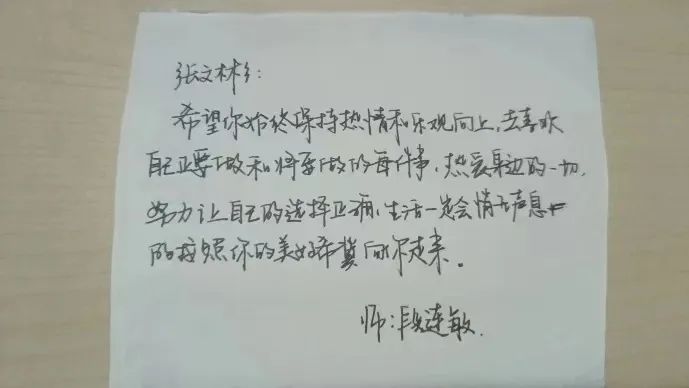 张文彬:
希望你始终保持热情和乐观向上,去喜欢
自己正要做和将要做的每件事,热爱身边的一切,
努力让自己的选择正确,生活一定会悄无声息
的按照你的美好希冀向你走来。
师:段连敏.